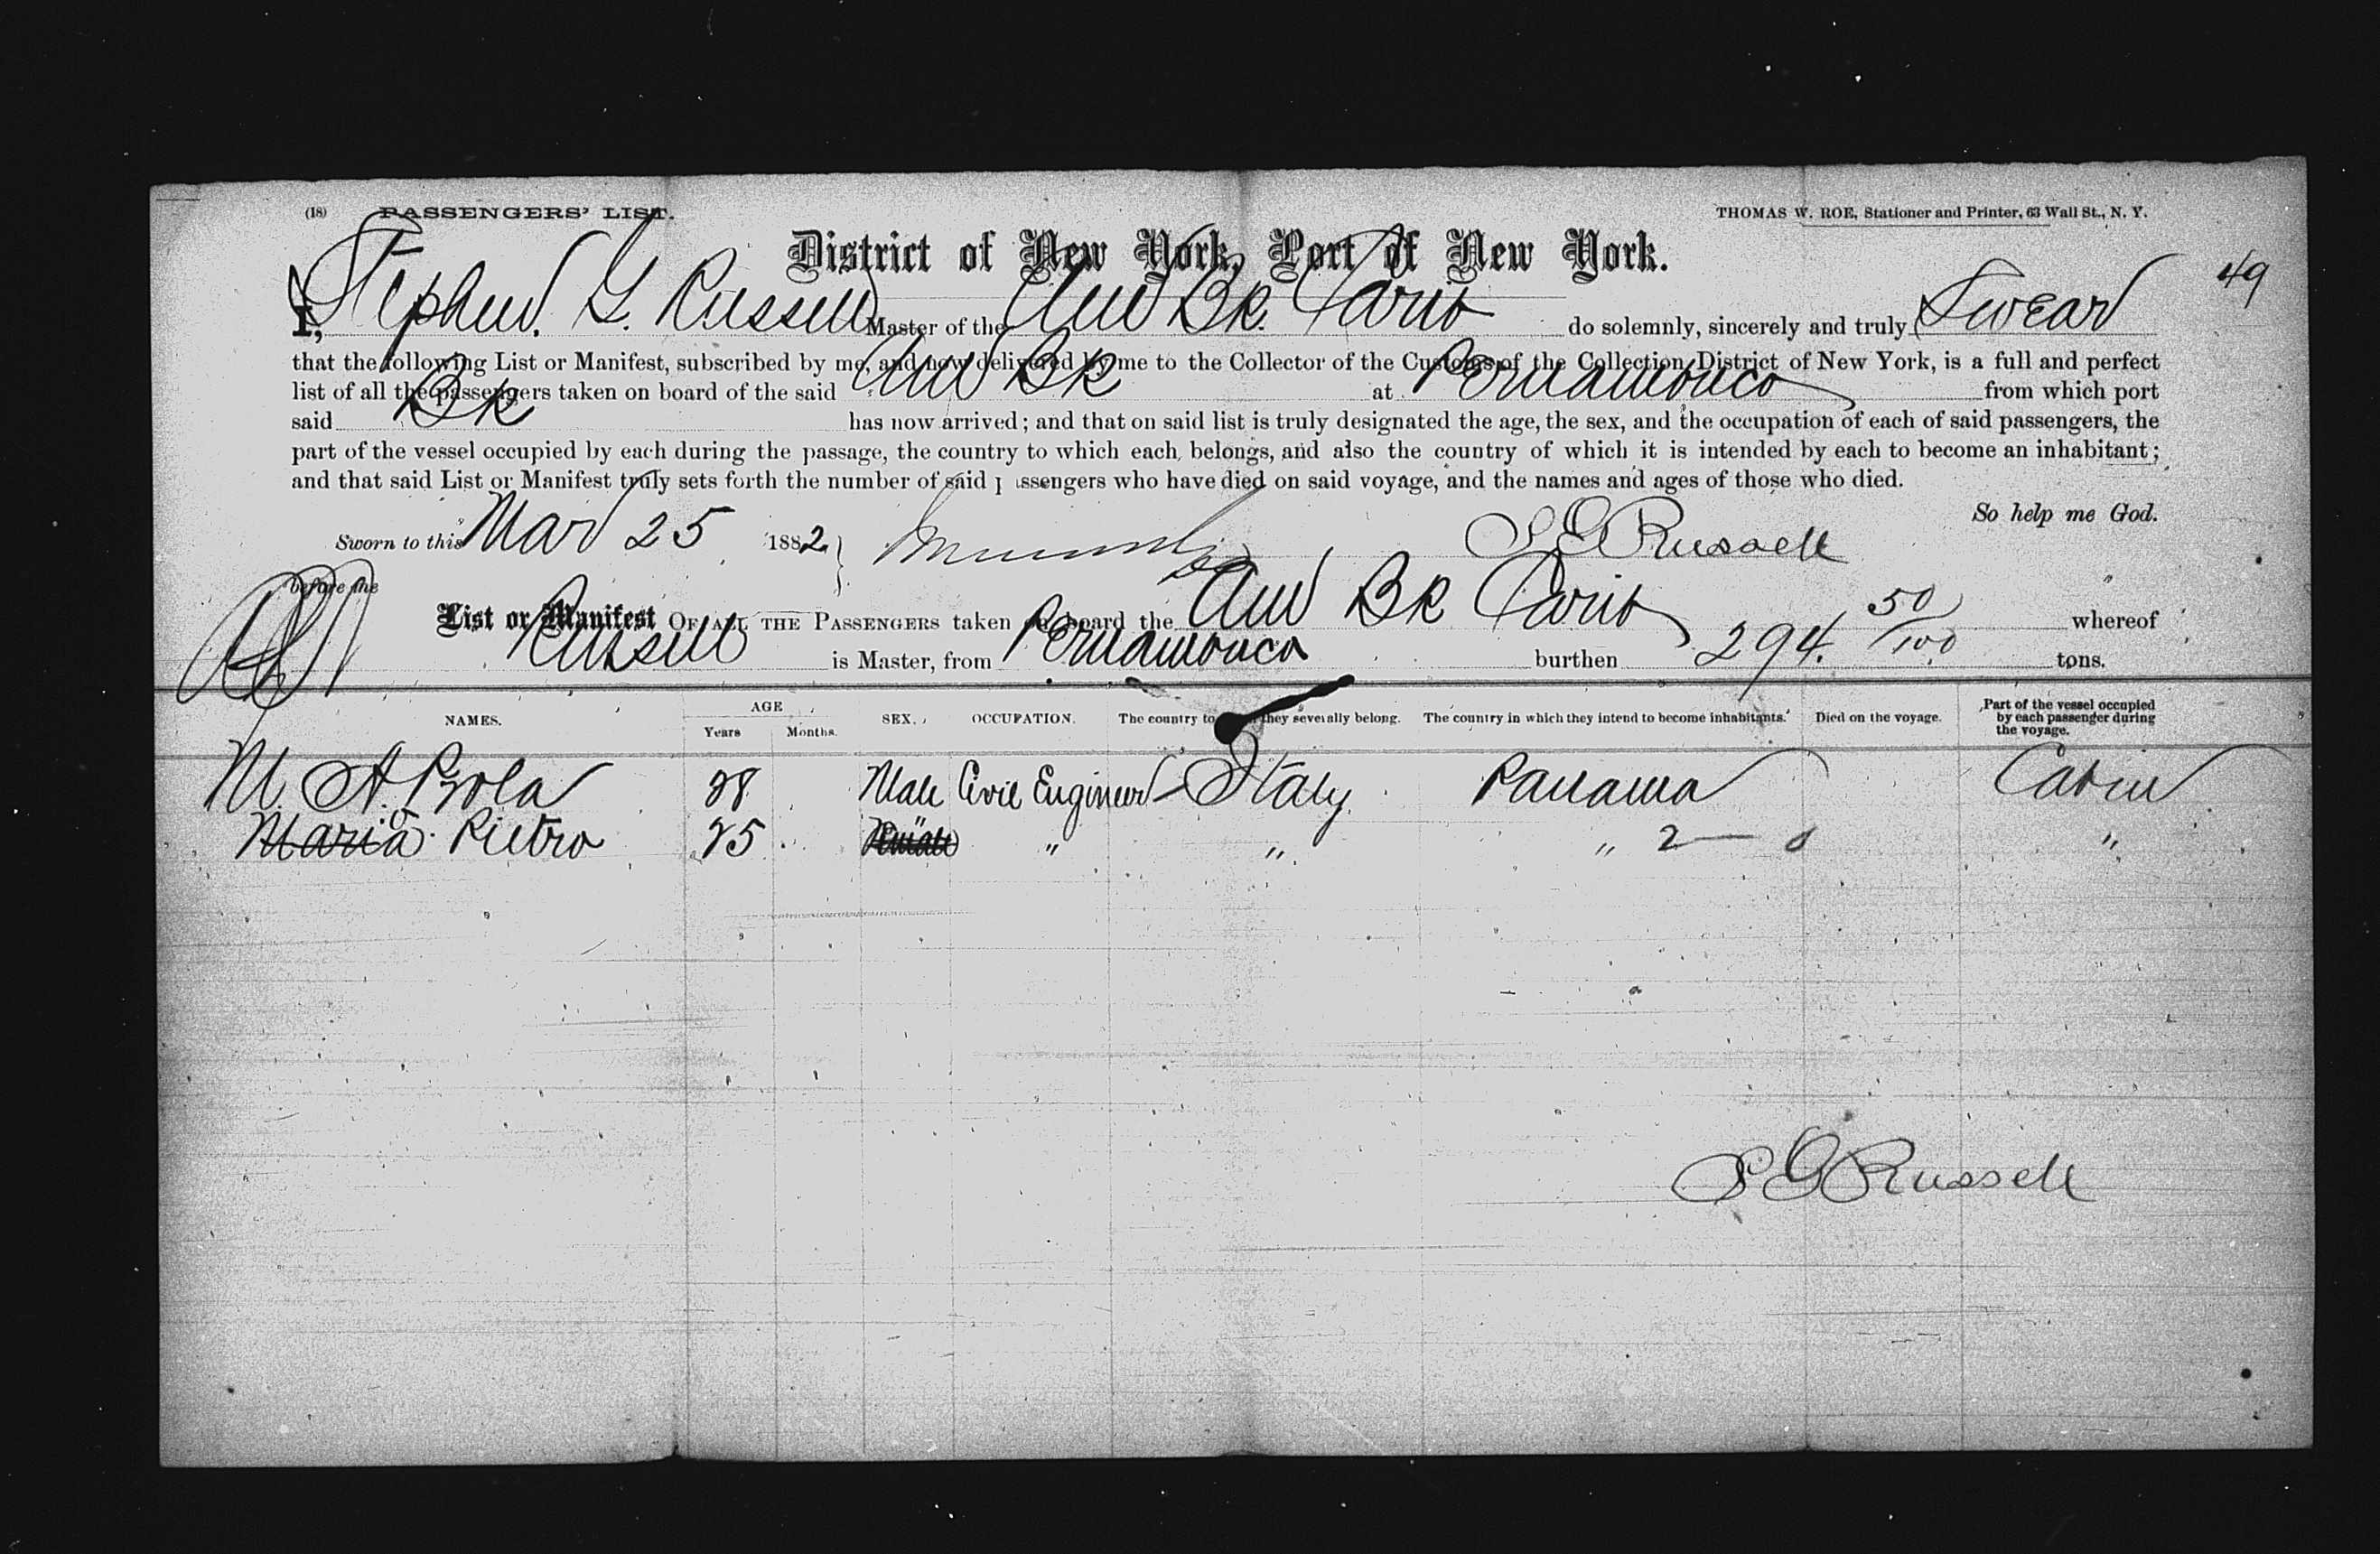 (18) PASSENGERS' LIST. THOMAS W. ROE, Stationer and Printer, 63 Wall St., N. Y.
District of New York, Port of New York.
49
I, Stephen G. Russell Master of the Am Bk. Carib do solemnly, sincerely and truly Swear
that the following List or Manifest, subscribed by me, and now delivered by me to the Collector of the Customs of the Collection District of New York, is a full and perfect
list of all the passengers taken on board of the said Am Bk at Pernambuco from which port
said Bk has now arrived; and that on said list is truly designated the age, the sex, and the occupation of each of said passengers, the
part of the vessel occupied by each during the passage, the country to which each belongs, and also the country of which it is intended by each to become an inhabitant;
and that said List or Manifest truly sets forth the number of said passengers who have died on said voyage, and the names and ages of those who died.
So help me God.
Sworn to this Mar 25 1882 S G Russell
before me
List or Manifest OF ALL THE PASSENGERS taken on board the Am Bk Carib whereof
Russell is Master, from Pernambuco burthen 294. 50/100 tons.
NAMES. AGE Years Months. SEX. OCCUPATION. The country to they severally belong. The country in which they intend to become inhabitants. Died on the voyage. Part of the vessel occupied by each passenger during the voyage.
M. A. 28 Male Civil Engineer Italy Panama Cabin
Maria Pietro 25 " " " " 2 — 0 "
S G Russell